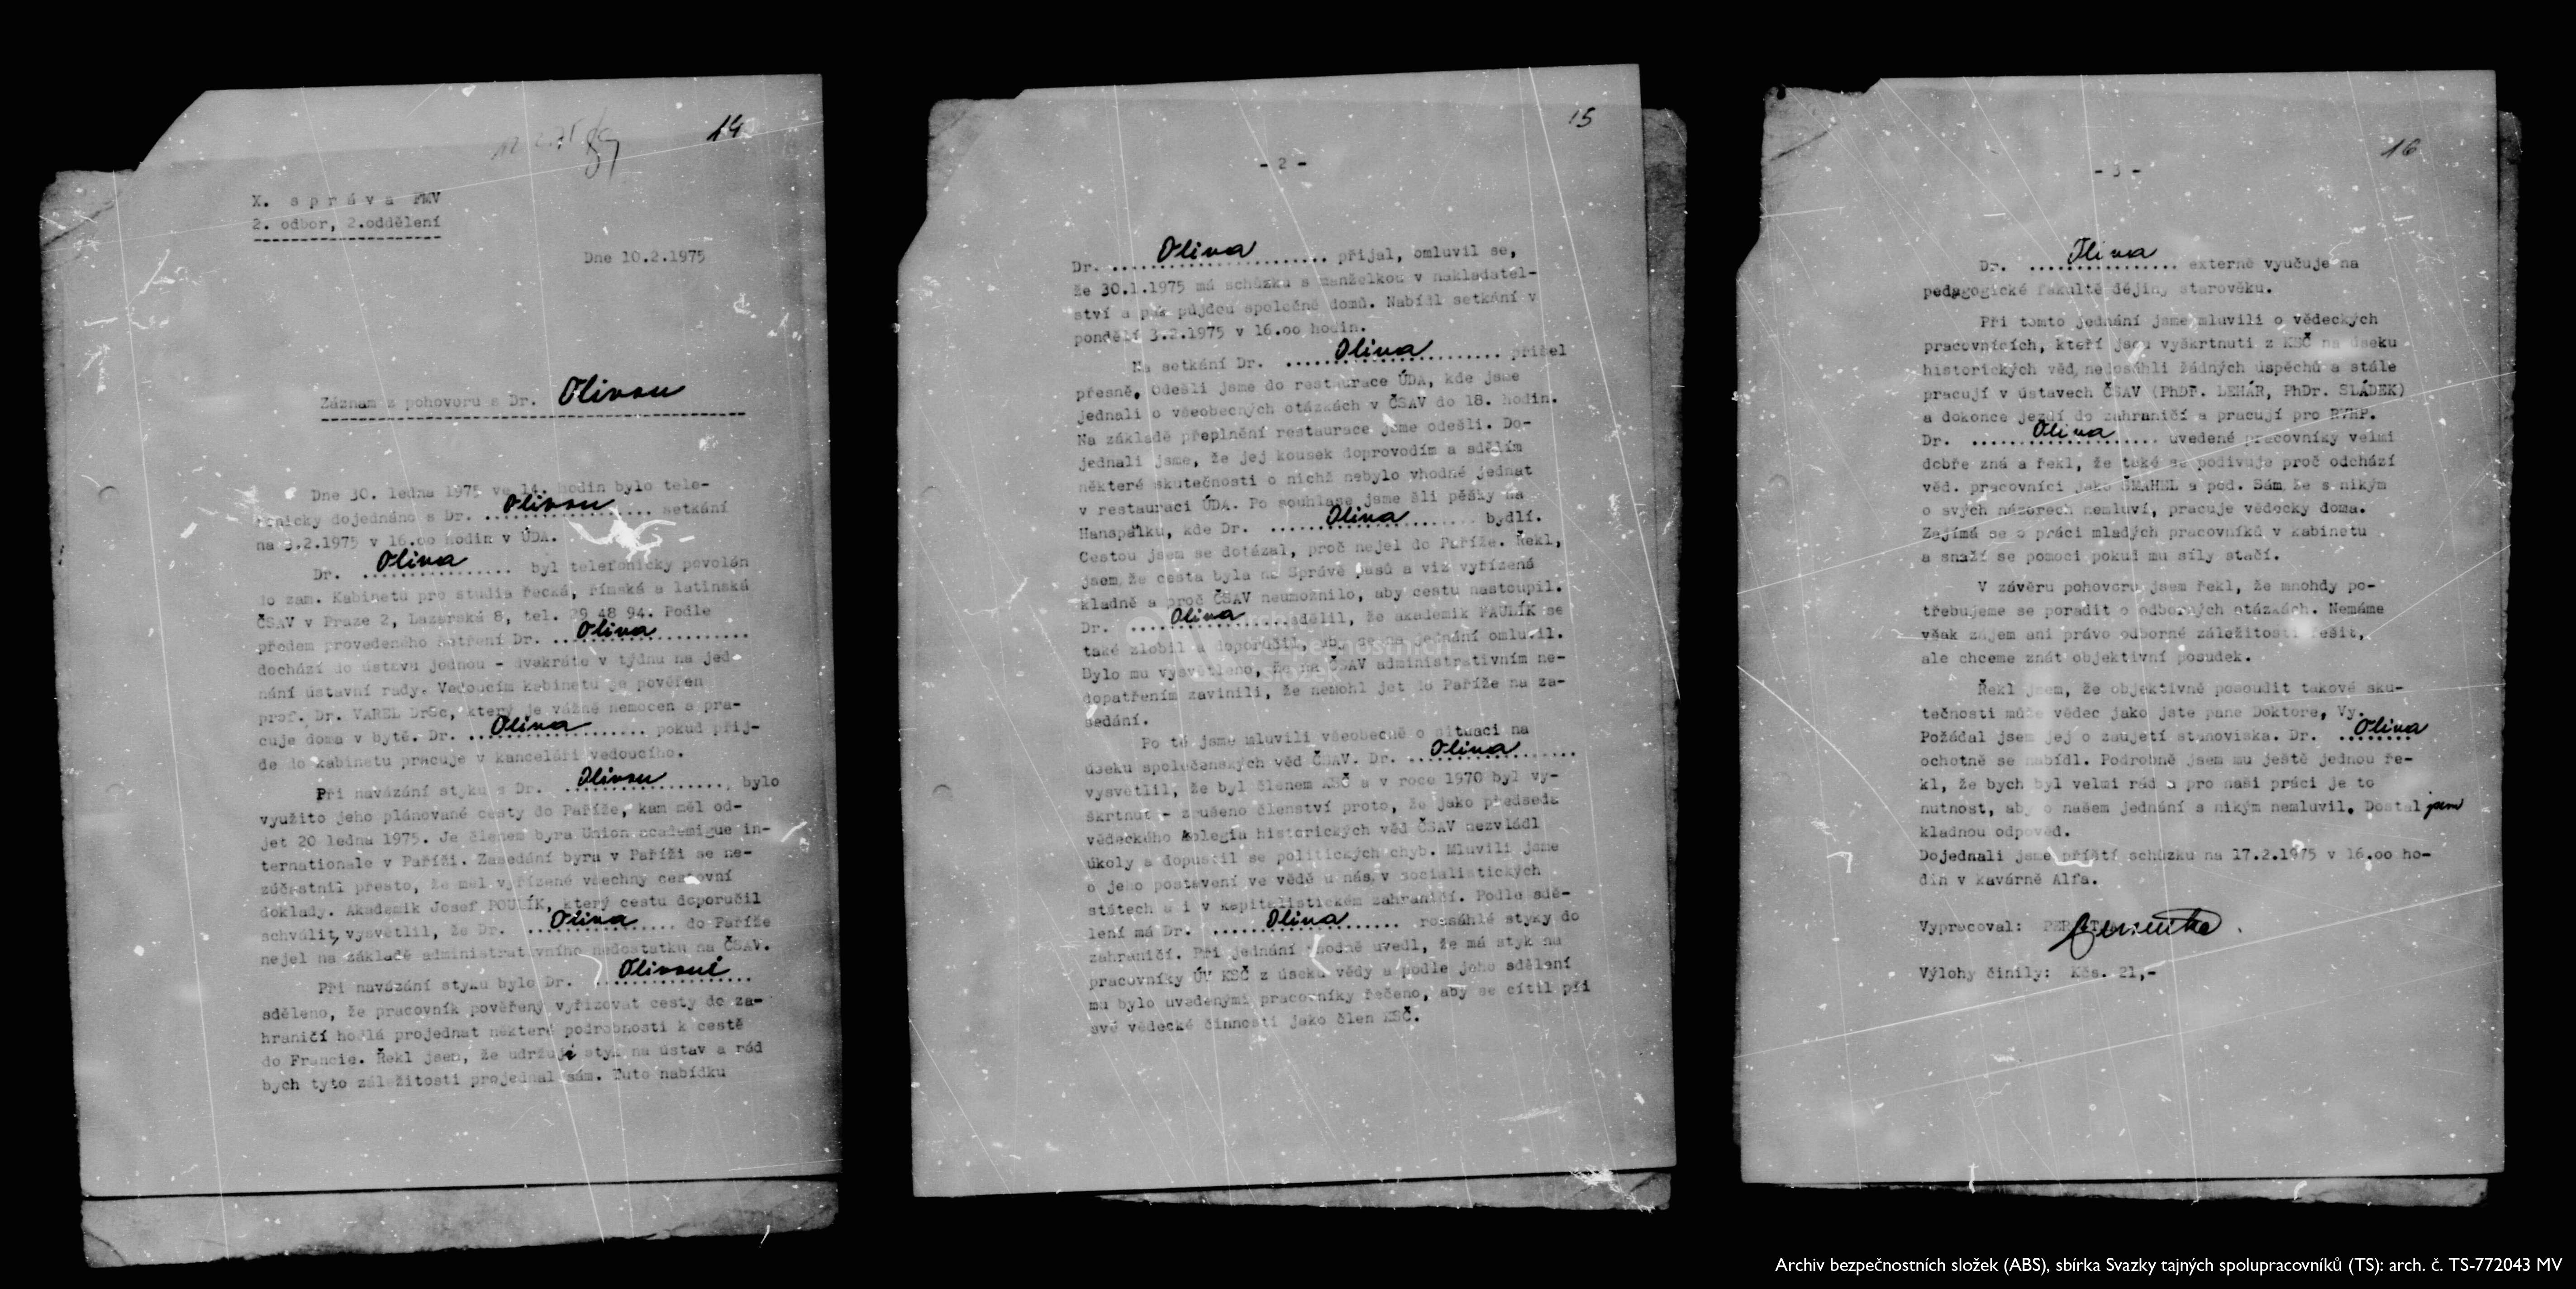 14
X. správa FMV
2. odbor, 2.oddělení
Dne 10.2.1975
Záznam z pohovoru s Dr. Olivou
Dne 30. ledna 1975 ve 14. hodin bylo tele-
fonicky dojednáno s Dr. Olivou setkání
na 3.2.1975 v 16.oo hodin v ÚDA.
Dr. Oliva byl telefonicky povolán
do zam. Kabinetu pro studia řecká, římská a latinská
ČSAV v Praze 2, Lazarská 8, tel. 29 48 94. Podle
předem provedeného šetření Dr. Oliva
dochází do ústavu jednou - dvakráte v týdnu na jed-
nání ústavní rady. Vedoucím kabinetu je pověřen
prof. Dr. VAREL DrSc, který je vážně nemocen a pra-
cuje doma v bytě. Dr. Oliva pokud přij-
de do kabinetu pracuje v kanceláři vedoucího.
Při navázání styku s Dr. Olivou, bylo
využito jeho plánované cesty do Paříže, kam měl od-
jet 20 ledna 1975. Je členem byra Union academigue in-
ternationale v Paříži. Zasedání byra v Paříži se ne-
zúčastnil přesto, že měl vyřízené všechny cestovní
doklady. Akademik Josef POULÍK, který cestu doporučil
schválit, vysvětlil, že Dr. Oliva do Paříže
nejel na základě administrativního nedostatku na ČSAV.
Při navázání styku bylo Dr. Olivovi
sděleno, že pracovník pověřený vyřizovat cesty do za-
hraničí hodlá projednat některé podrobnosti k cestě
do Francie. Řekl jsem, že udržuji styk na ústav a rád
bych tyto záležitosti projednal sám. Tuto nabídku
15
- 2 -
Dr. Oliva přijal, omluvil se,
že 30.1.1975 má schůzku s manželkou v nakladatel-
ství a pak půjdou společně domů. Nabídl setkání v
pondělí 3.2.1975 v 16.oo hodin.
Na setkání Dr. Oliva přišel
přesně. Odešli jsme do restaurace ÚDA, kde jsme
jednali o všeobecných otázkách v ČSAV do 18. hodin.
Na základě přeplnění restaurace jsme odešli. Do-
jednali jsme, že jej kousek doprovodím a sdělím
některé skutečnosti o nichž nebylo vhodné jednat
v restauraci ÚDA. Po souhlase jsme šli pěšky na
Hanspálku, kde Dr. Oliva bydlí.
Cestou jsem se dotázal, proč nejel do Paříže. Řekl,
jsem, že cesta byla na Správě pasů a viz vyřízená
kladně a proč ČSAV neumožnilo, aby cestu nastoupil.
Dr. Oliva sdělil, že akademik PAULÍK se
také zlobil a doporučil, aby se na jednání omluvil.
Bylo mu vysvětleno, že na ČSAV administrativním ne-
dopatřením zavinili, že nemohl jet do Paříže na za-
sedání.
Po té jsme mluvili všeobecně o situaci na
úseku společenských věd ČSAV. Dr. Oliva
vysvětlil, že byl členem KSČ a v roce 1970 byl vy-
škrtnut - zrušeno členství proto, že jako předseda
vědeckého kolegia historických věd ČSAV nezvládl
úkoly a dopustil se politických chyb. Mluvili jsme
o jeho postavení ve vědě u nás, v socialistických
státech a i v kapitalistickém zahraničí. Podle sdě-
lení má Dr. Oliva rozsáhlé styky do
zahraničí. Při jednání vhodně uvedl, že má styk na
pracovníky ÚV KSČ z úseku vědy a podle jeho sdělení
mu bylo uvedenými pracovníky řečeno, aby se cítil při
své vědecké činnosti jako člen KSČ.
16
- 3 -
Dr. Oliva externě vyučuje na
pedagogické fakultě dějiny starověku.
Při tomto jednání jsme mluvili o vědeckých
pracovnících, kteří jsou vyškrtnuti z KSČ na úseku
historických věd, nedosáhli žádných úspěchů a stále
pracují v ústavech ČSAV (PhDr. LEHÁR, PhDr. SLÁDEK)
a dokonce jezdí do zahraničí a pracují pro RVHP.
Dr. Oliva uvedené pracovníky velmi
dobře zná a řekl, že také se podivuje proč odchází
věd. pracovníci jako ŠMAHEL a pod. Sám, že s nikým
o svých názorech nemluví, pracuje vědecky doma.
Zajímá se o práci mladých pracovníků v kabinetu
a snaží se pomoci pokud mu síly stačí.
V závěru pohovoru jsem řekl, že mnohdy po-
třebujeme se poradit o odborných otázkách. Nemáme
však zájem ani právo odborné záležitosti řešit,
ale chceme znát objektivní posudek.
Řekl jsem, že objektivně posoudit takové sku-
tečnosti může vědec jako jste pane Doktore, Vy.
Požádal jsem jej o zaujetí stanoviska. Dr. Oliva
ochotně se nabídl. Podrobně jsem mu ještě jednou ře-
kl, že bych byl velmi rád a pro naši práci je to
nutnost, aby o našem jednání s nikým nemluvil. Dostal jsem
kladnou odpověd.
Dojednali jsme příští schůzku na 17.2.1975 v 16.oo ho-
din v kavárně Alfa.
Vypracoval:
Výlohy činily: Kčs. 21,-
Archiv bezpečnostních složek (ABS), sbírka Svazky tajných spolupracovníků (TS): arch. č. TS-772043 MV